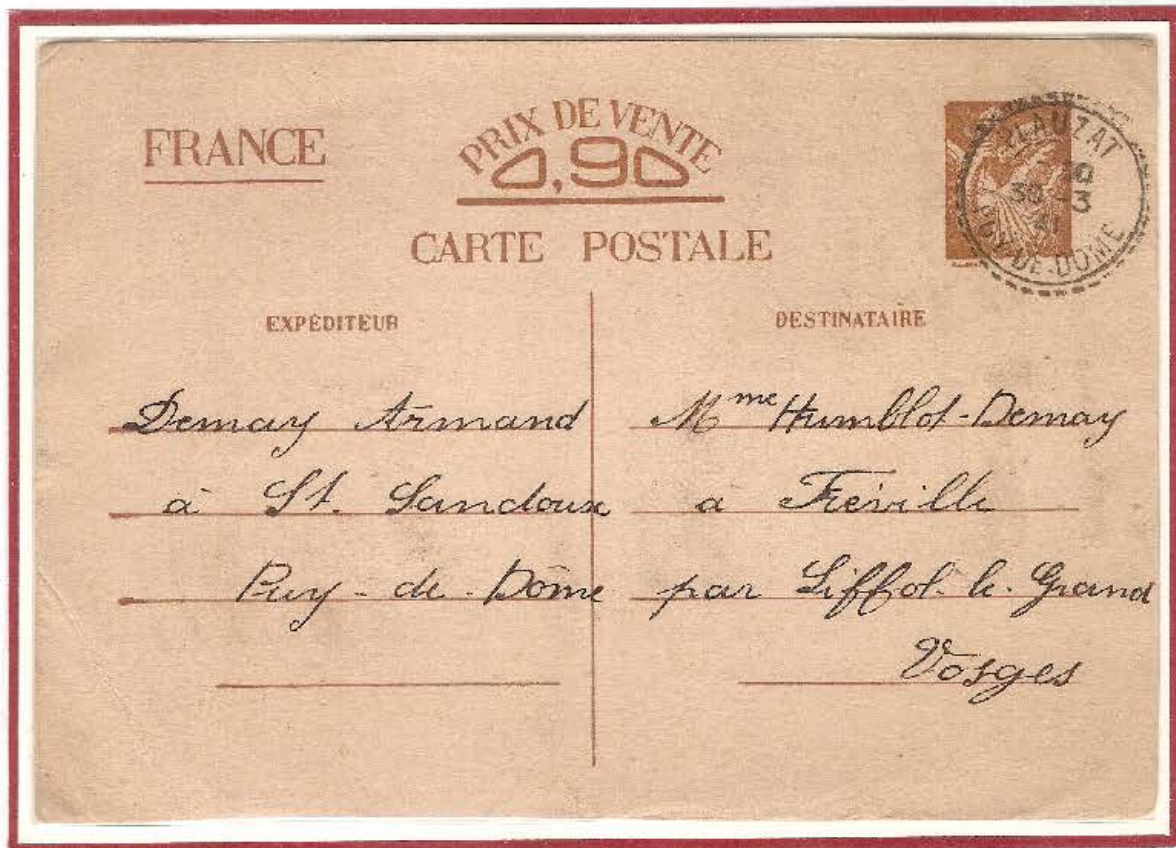 FRANCE
PRIX DE VENTE
0,90
CARTE POSTALE
PLAUZAT
10
30 -3
41
PUY-DE-DOME
EXPÉDITEUR
Demay Armand
à St. Sandoux
Puy-de-Dôme
DESTINATAIRE
Mme Humblot-Demay
a Fréville
par Liffol-le-Grand
Vosges